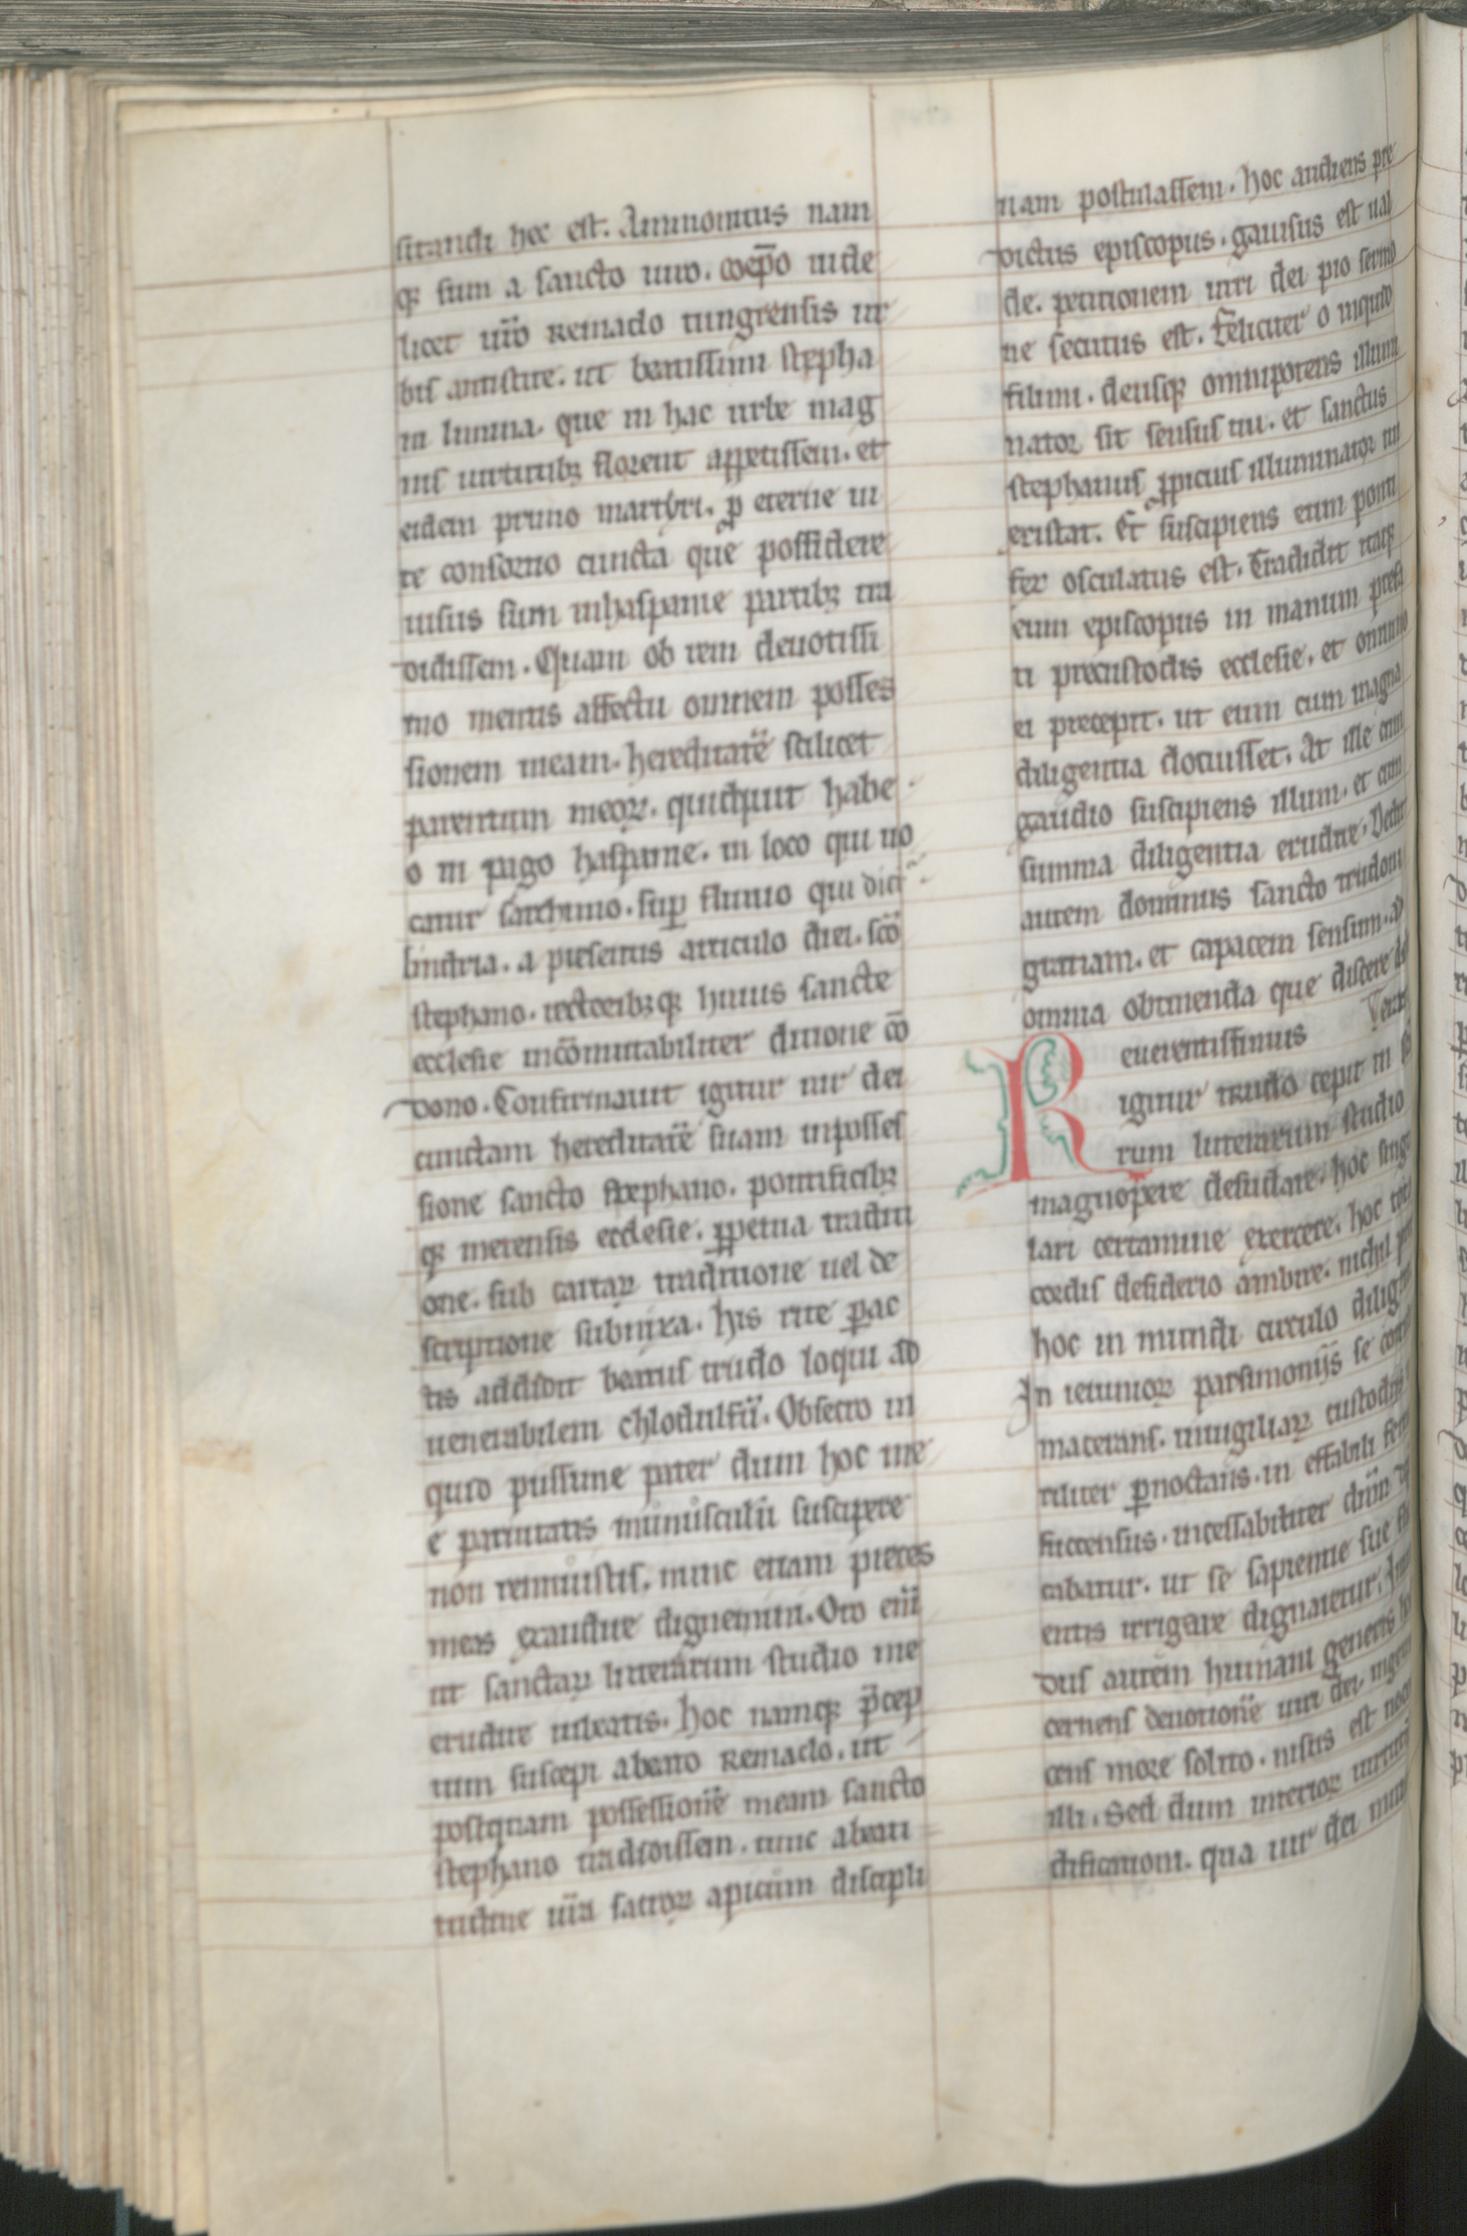 sitandi hoc est. Ammonitus nam
q; sum a sancto uiro. coep̄o uide
licet ur̄o Remaclo tungrensis ur
bis antistite. ut beatissimi stepha
ni limina. que in hac urbe mag
nis uirtutib; florent appetissem. et
eidem primo martyri. p eterne ui
te consorcio cuncta que possidere
uisus sum inhaspanie partib; tra
didissem. Quam ob rem deuotissi
mo mentis affectu omnem posses
sionem meam. hereditatē scilicet
parentum meoꝝ. quicquit habe
o in pago haspanie. in loco qui uo
catur sarchinio. sup fluuio qui dici
cindria. a presentis articulo diei. scō
stephano. rectorib;q; huius sancte
ecclesie incōmutabiliter ditione cō
dono. Confirmauit igitur uir dei
cunctam hereditatē suam inposses
sione sancto stephano. pontificib;
q; metensis ecclesie. ꝑpetua traditi
one. sub cartaꝝ traditione uel de
scriptione subnixa. His rite ꝑac
tis addidit beatus trudo loqui ad
uenerabilem chlodulfū. Obsecro in
quid piissime pater dum hoc me
e paruitatis munusculū suscipere
non rennuistis. nunc etiam preces
meas exaudire dignemini. Oro eni
ut sanctaꝝ litterarum studio me
erudire iubeatis. Hoc namq; p̄cep
tum suscepi abeato Remaclo. ut
postquam possessionē meam sancto
stephano tradidissem. tunc abeati
tudine ur̄a sacroꝝ apicum discipli
nam postulassem. Hoc audiens pre
dictus episcopus. gauisus est ual
de. petitionem uiri dei pro sermo
ne secutus est. Feliciter o inquid
filimi. deusq; omnipotens illumi
nator sit sensus tui. et sanctus
stephanus ꝑpicuus illuminator tui
existat. Et suscipiens eum ponti
fex osculatus est. Tradidit itaq;
eum episcopus in manum prefa
ti precustodis ecclesie. et omnino
ei precepit. ut eum cum magna
diligentia docuisset. At ille cum
gaudio suscipiens illum. et cum
summa diligentia erudire. Dedit
autem dominus sancto trudoni
gratiam. et capacem sensum. ad
omnia obtinenda que discere de
Reuerentissimus
igitur trudo cepit in
rum litterarum studio
magnopere desudare. hoc singu
lari certamine exercere. hoc toto
cordis desiderio ambire. nichil
hoc in mundi circulo
In ieiunioꝝ parsimoniis se
macerans. inuigiliaꝝ custodiis
riliter ꝑnoctans. in effabili
succensus. incessabiliter
cabatur. ut se sapientie sue
entis irrigare dignaretur.
dus autem humani generis
cernens deuotionē uiri dei.
cens more solito. nisus est
illi. Sed dum interior
dificationi. qua uir dei